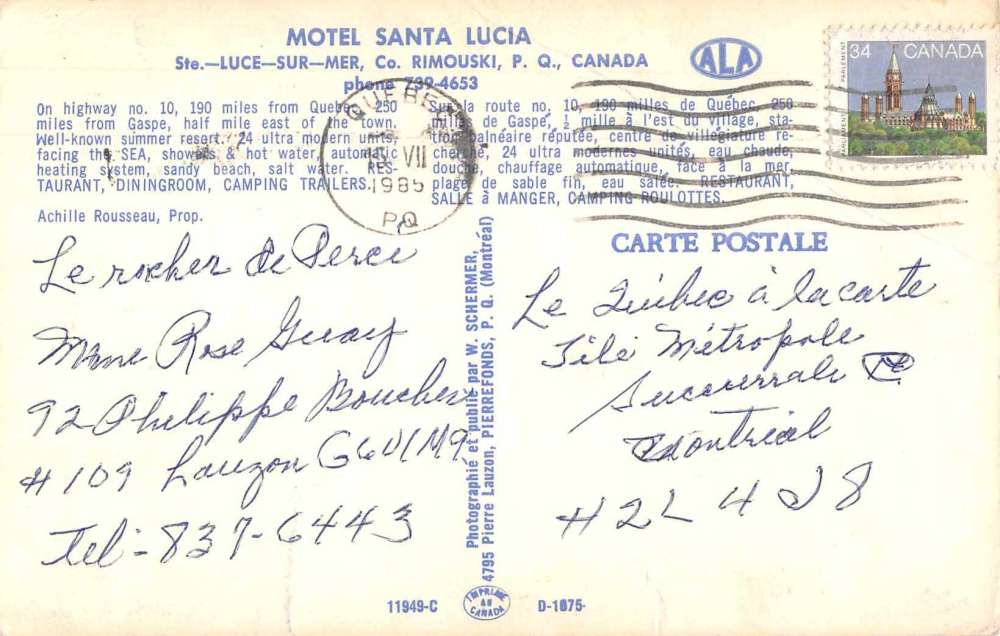 MOTEL SANTA LUCIA
Ste.—LUCE—SUR—MER, Co. RIMOUSKI, P. Q., CANADA
phone 739-4653
ALA
PARLEMENT PARLIAMENT
34 CANADA
On highway no. 10, 190 miles from Quebec, 250
miles from Gaspe, half mile east of the town.
Well-known summer resort. 24 ultra modern units,
facing the SEA, showers & hot water, automatic
heating system, sandy beach, salt water. RES-
TAURANT, DININGROOM, CAMPING TRAILERS.
Achille Rousseau, Prop.
Sur la route no, 10, 190 milles de Québec, 250
milles de Gaspe, ½ mille à l'est du village, sta-
tion balnéaire réputée, centre de villégiature re-
cherché, 24 ultra modernes unités, eau chaude,
douche, chauffage automatique, face à la mer
plage de sable fin, eau salée. RESTAURANT,
SALLE à MANGER, CAMPING ROULOTTES.
VII
1985
P.Q
CARTE POSTALE
Le rocher de Perce
Mme Rose Guay
92 Philippe Boucher
# 109 Lauzon G6V1M9
Tel - 837-6443
Photographie et publié par W. SCHERMER,
4795 Pierre Lauzon, PIERREFONDS, P. Q. (Montréal)
Le Québec à la carte
Télé Métropole
Succurrale
Montréal
H2L 4J8
11949-C
IMPRIMÉ AU CANADA
D-1875-